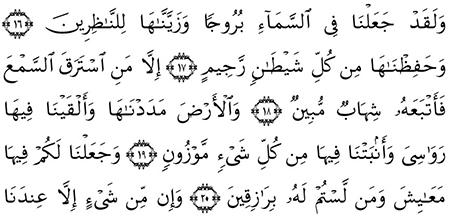 وَلَقَدْ جَعَلْنَا فِى ٱلسَّمَآءِ بُرُوجًا وَزَيَّنَّـٰهَا لِلنَّـٰظِرِينَ ١٦
وَحَفِظْنَـٰهَا مِن كُلِّ شَيْطَـٰنٍ رَّجِيمٍ ١٧ إِلَّا مَنِ ٱسْتَرَقَ ٱلسَّمْعَ
فَأَتْبَعَهُۥ شِهَابٌ مُّبِينٌ ١٨ وَٱلْأَرْضَ مَدَدْنَـٰهَا وَأَلْقَيْنَا فِيهَا
رَوَٰسِىَ وَأَنۢبَتْنَا فِيهَا مِن كُلِّ شَىْءٍ مَّوْزُونٍ ١٩ وَجَعَلْنَا لَكُمْ فِيهَا
مَعَـٰيِشَ وَمَن لَّسْتُمْ لَهُۥ بِرَٰزِقِينَ ٢٠ وَإِن مِّن شَىْءٍ إِلَّا عِندَنَا